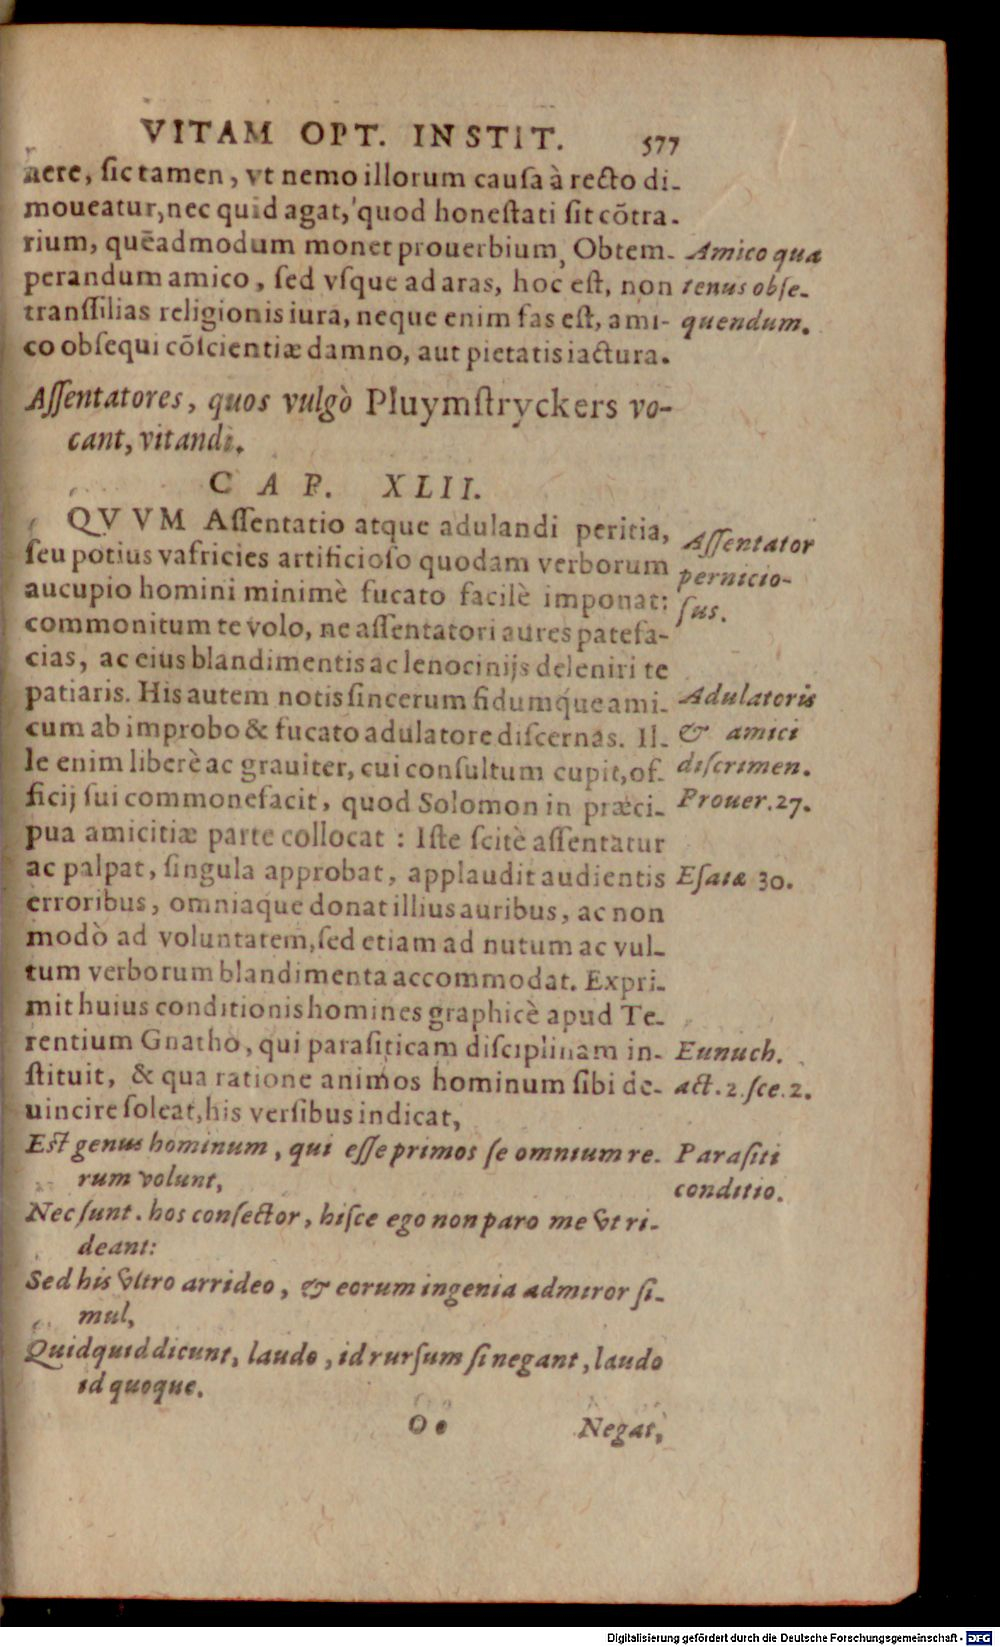 VITAM OPT. INSTIT. 577
nere, ſic tamen, vt nemo illorum cauſa à recto di-
moueatur, nec quid agat, quod honeſtati ſit cõtra-
rium, quẽadmodum monet prouerbium, Obtem-
perandum amico, ſed vſque ad aras, hoc eſt, non
tranſſilias religionis iura, neque enim fas eſt, ami-
co obſequi cõſcientiæ damno, aut pietatis iactura.
Amico qua
tenus obſe-
quendum.
Aſſentatores, quos vulgò Pluymſtryckers vo-
cant, vitandi.
CAP. XLII.
QVVM Aſſentatio atque adulandi peritia,
ſeu potius vafricies artificioſo quodam verborum
aucupio homini minimè fucato facilè imponat:
commonitum te volo, ne aſſentatori aures patefa-
cias, ac eius blandimentis ac lenocinijs deleniri te
patiaris. His autem notis ſincerum fidumque ami-
cum ab improbo & fucato adulatore diſcernas. Il-
le enim liberè ac grauiter, cui conſultum cupit, of-
ficij ſui commonefacit, quod Solomon in præci-
pua amicitiæ parte collocat : Iſte ſcitè aſſentatur
ac palpat, ſingula approbat, applaudit audientis
erroribus, omniaque donat illius auribus, ac non
modò ad voluntatem, ſed etiam ad nutum ac vul-
tum verborum blandimenta accommodat. Expri-
mit huius conditionis homines graphicè apud Te-
rentium Gnatho, qui paraſiticam diſciplinam in-
ſtituit, & qua ratione animos hominum ſibi de-
uincire ſoleat, his verſibus indicat,
Aſſentator
pernicio-
ſus.
Adulatoris
& amici
diſcrimen.
Prouer. 27.
Eſaiæ 30.
Eunuch.
act. 2. ſce. 2.
Eſt genus hominum, qui eſſe primos ſe omnium re-
rum volunt,
Nec ſunt. hos conſector, hiſce ego non paro me vt ri-
deant:
Sed his vltro arrideo, & eorum ingenia admiror ſi-
mul,
Quidquid dicunt, laudo, id rurſum ſi negant, laudo
id quoque.
Paraſiti
conditio.
Oo Negat,
Digitalisierung gefördert durch die Deutsche Forschungsgemeinschaft - DFG